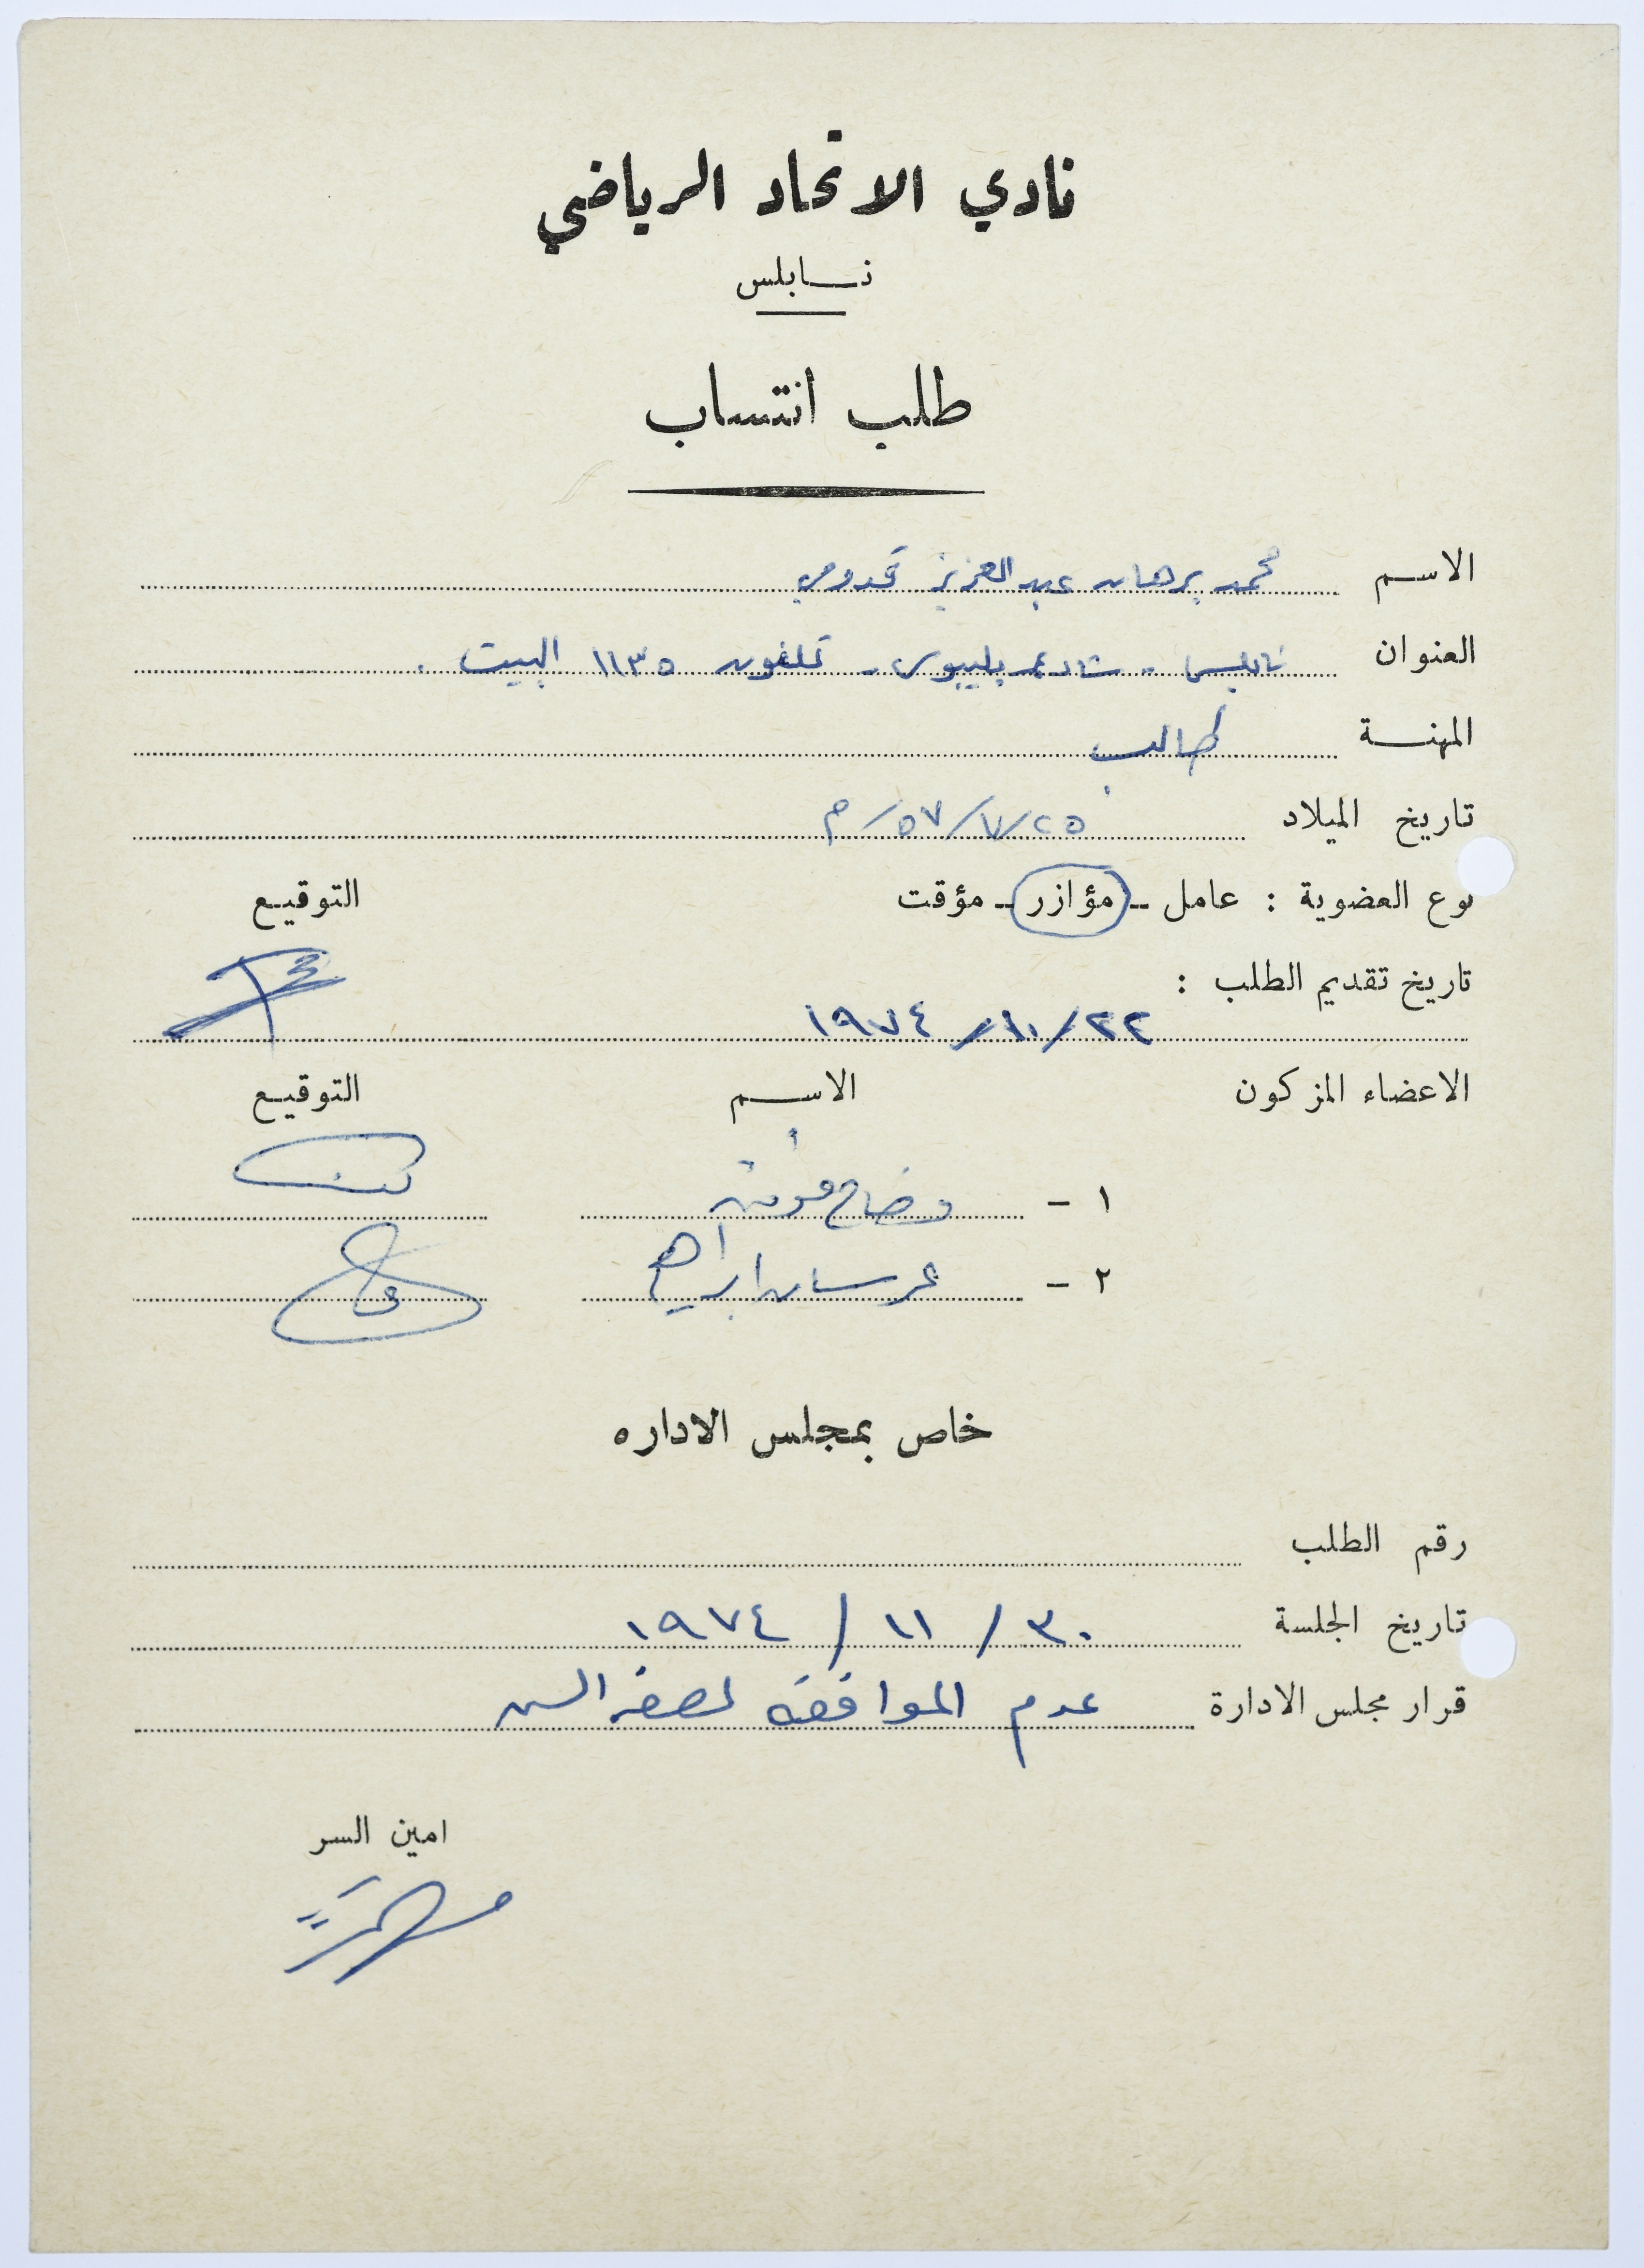 نادي الاتحاد الرياضي
نابلس
طلب انتساب
الاسم محمد برهان عبد العزيز قدومي
العنوان نابلس - شارع بليبوس - تلفون ١١٣٥ البيت .
المهنة طالب
تاريخ الميلاد ٢٥/٧/٥٧/م
نوع العضوية : عامل - مؤازر - مؤقت التوقيع
تاريخ تقديم الطلب :
٢٢/١٠/١٩٧٤
الاعضاء المزكون الاسم التوقيع
١ - وضاح
٢ - عرسان ابراهيم
خاص بمجلس الاداره
رقم الطلب
تاريخ الجلسة ٣٠/١١/١٩٧٤
قرار مجلس الادارة عدم الموافقة لصغر السن
امين السر